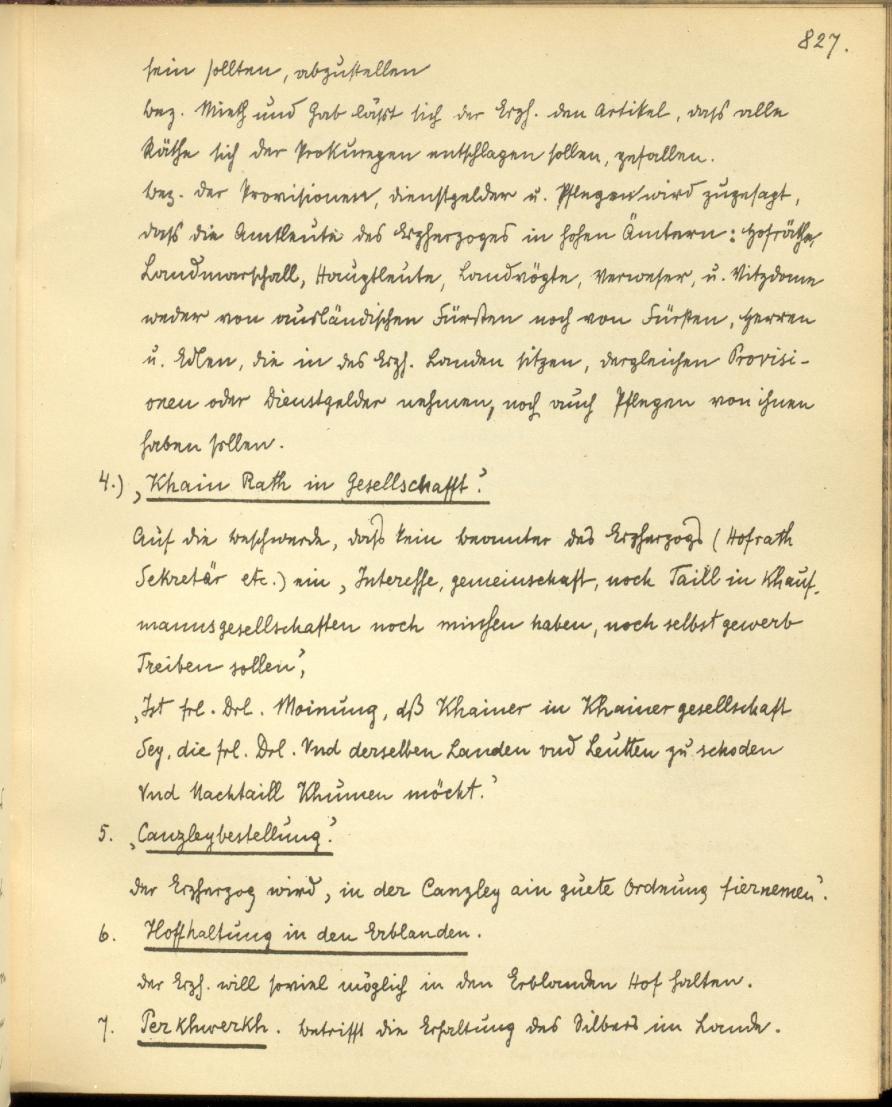 827.
sein sollten, abzustellen
bez. Mieth und Gab läßt sich der Erzh. den Artikel, daß alle
Räthe sich der Prokureyen entschlagen sollen, gefallen.
bez. der Provisionen, Dienstgelder u. Pflegen wird zugesagt,
daß die Amtleute des Erzherzoges in hohen Ämtern: Hofräthe,
Landmarschall, Hauptleute, Landvögte, Verweser, u. Vitzdome
weder von ausländischen Fürsten noch von Fürsten, Herren
u. Edlen, die in des Erzh. Landen sitzen, dergleichen Provisi-
onen oder Dienstgelder nehmen, noch auch Pflegen von ihnen
haben sollen.
4.) „Khain Rath in Gesellschafft“.
Auf die Beschwerde, daß kein Beamter des Erzherzogs (Hofrath
Sekretär etc.) ein „Interesse, gemeinschaft, noch Taill in Khauf-
mannsgesellschaften noch haben, noch selbst gewerb
Treiben sollen“,
„Ist frl. Drl. Moinung, dß Khainer in Khainer gesellschaft
Sey, die frl. Drl. Vnd derselben Landen vnd Leutten zu schaden
Vnd Nachtaill Khumen möcht.“
5. „Canzleybestellung“.
der Erzherzog wird „in der Canzley ain guete Ordnung fiernemen“.
6. Hoffhaltung in den Erblanden.
der Erzh. will soviel möglich in den Erblanden Hof halten.
7. Perkhwerkh. betrifft die Erhaltung des Silbers im Lande.